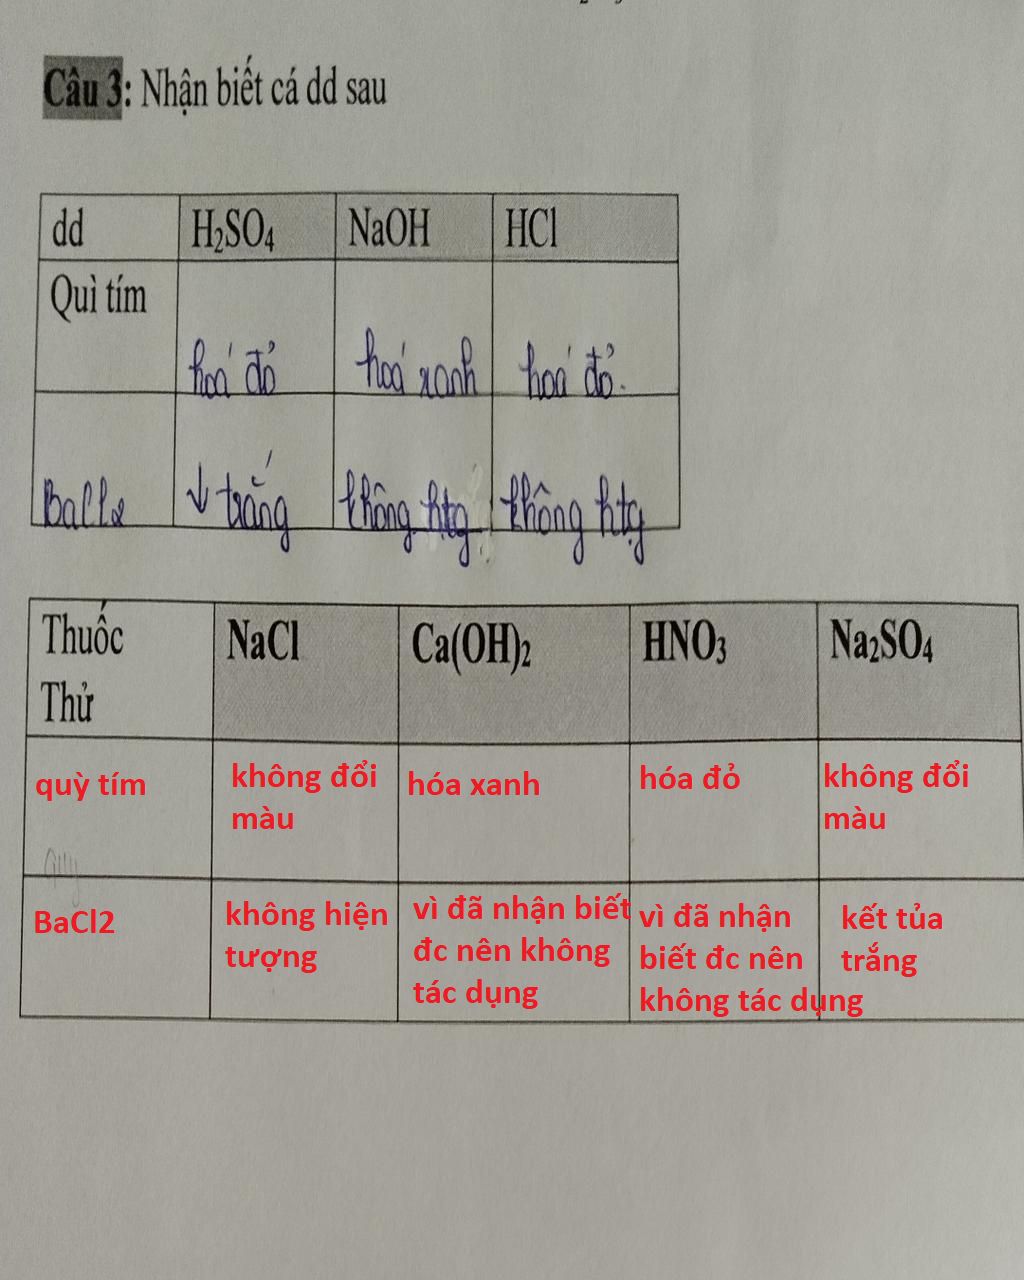 Câu 3: Nhận biết cá dd sau
dd H₂SO₄ NaOH HCl
Quì tím
hoá đỏ hoá xanh hoá đỏ.
BaCl2 ↓ trắng không htg không htg
Thuốc NaCl Ca(OH)₂ HNO₃ Na₂SO₄
Thử
quỳ tím không đổi hóa xanh hóa đỏ không đổi
màu màu
BaCl2 không hiện vì đã nhận biết vì đã nhận kết tủa
tượng đc nên không biết đc nên trắng
tác dụng không tác dụng